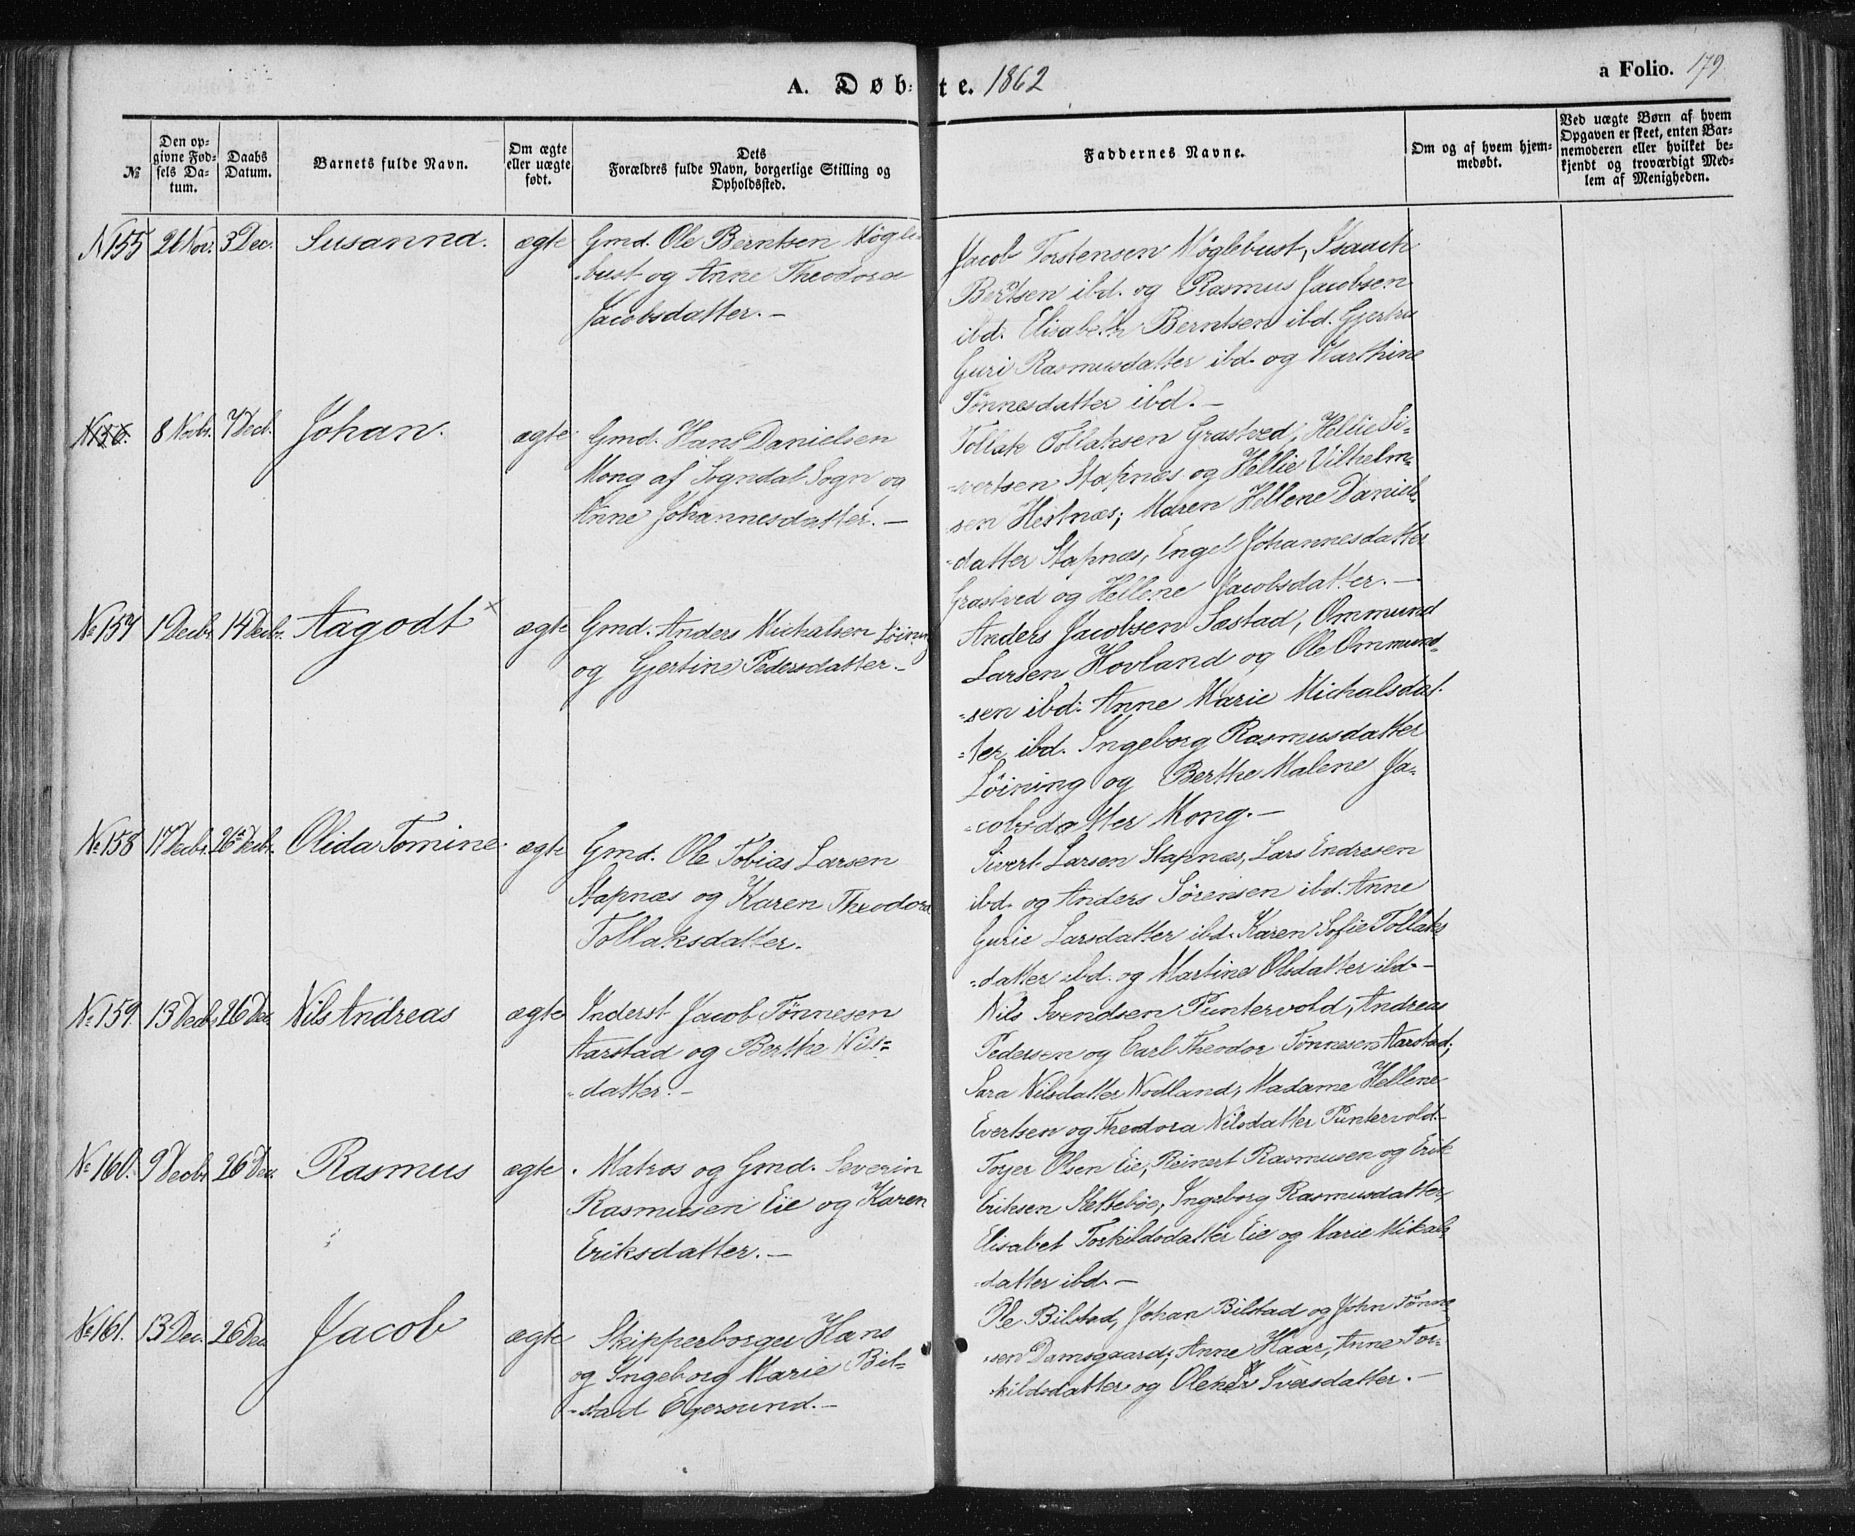 A. Døbte. 1862
a Folio. 179
№
Den opgivne Fødsels Datum.
Daabs Datum.
Barnets fulde Navn.
Om ægte eller uægte født.
Dets Forældres fulde Navn, borgerlige Stilling og Opholdssted.
Faddernes Navne.
Om og af hvem hjemmedøbt.
Ved uægte Børn af hvem Opgaven er skeet, enten Barnemoderen eller hvilket bekjendt og troværdigt Medlem af Menigheden.
N155 26 Nov. 3 Dec. Susanna. ægte Gmd. Ole Berntsen Nögle-
bust og Anne Theodora
Jacobsdatter. —
Jacob Torstensen Nöglebust, Isaach
Berntsen ibd. og Rasmus Jacobsen
ibd. Elisabeth Berntsen ibd. Gjertru
Guri Rasmusdatter ibd. og Marthine
Tönnesdatter ibd. —
N156. 8 Novbr. 7 Decb. Johan. ægte Gmd. Hans Danielsen
Mong af Sogndal Sogn og
Anne Johannesdatter. —
Tollak Tollaksen Grastved, Hellie Si-
-vertsen Stapnæs og Hellie Vilhelm-
sen Hestnæs; Maren Hellene Daniels-
-datter Stapnæs, Engel Johannesdatter
Grastved og Hellene Jacobsdatter. —
№157 1 Decbr. 14 Decbr. Aagodt × ægte Gmd. Anders Michalsen Löining
og Gjertine Pedersdatter. —
Anders Jacobsen Sæstad, Ommund
Larsen Hovland og Ole Ommund-
-sen ibd. Anne Marie Michalsdat-
-ter ibd. Ingeborg Rasmusdatter
Löining og Berthe Malene Ja-
-cobsdatter Mong. —
№158 17 Decbr. 26 Decbr. Olida Tomine. ægte Gmd. Ole Tobias Larsen
Stapnæs og Karen Theodora
Tollaksdatter.
Sivert Larsen Stapnæs, Lars Endresen
ibd. og Anders Sörensen ibd. Anne
Gurie Larsdatter ibd. Karen Sofie Tollaks
-datter ibd. og Martine Olsdatter ibd. —
№159. 13 Decbr. 26 Dec. Nils Andreas ægte Inderst Jacob Tönnesen
Aarstad og Berthe Nils-
-datter. —
Nils Svendsen Puntervold, Andreas
Pedersen og Carl Theodor Tönnesen Aarstad;
Sara Nilsdatter Nodland, Madame Hellene
Evertsen og Theodora Nilsdatter Puntervold.
№160. 9 Decbr. 26 Dec. Rasmus ægte. Matros og Gmd. Severin
Rasmusen Eie og Karen
Eriksdatter. —
Toyer Olsen Eie, Reinert Rasmusen og Erik
Eriksen Slettebøe; Ingeborg Rasmusdatter,
Elisabet Torkildsdatter Eie og Marie Mikals
-datter ibd. —
№161. 13 Dec. 26 Dec. Jacob ægte Skipperborger Hans
og Ingeborg Marie Bil-
-stad Egersund. —
Ole Bilstad, Johan Bilstad og John Tönne
-sen Damsgaard; Anne Haar, Anne Tor-
-kildsdatter og Olene Iversdatter. —